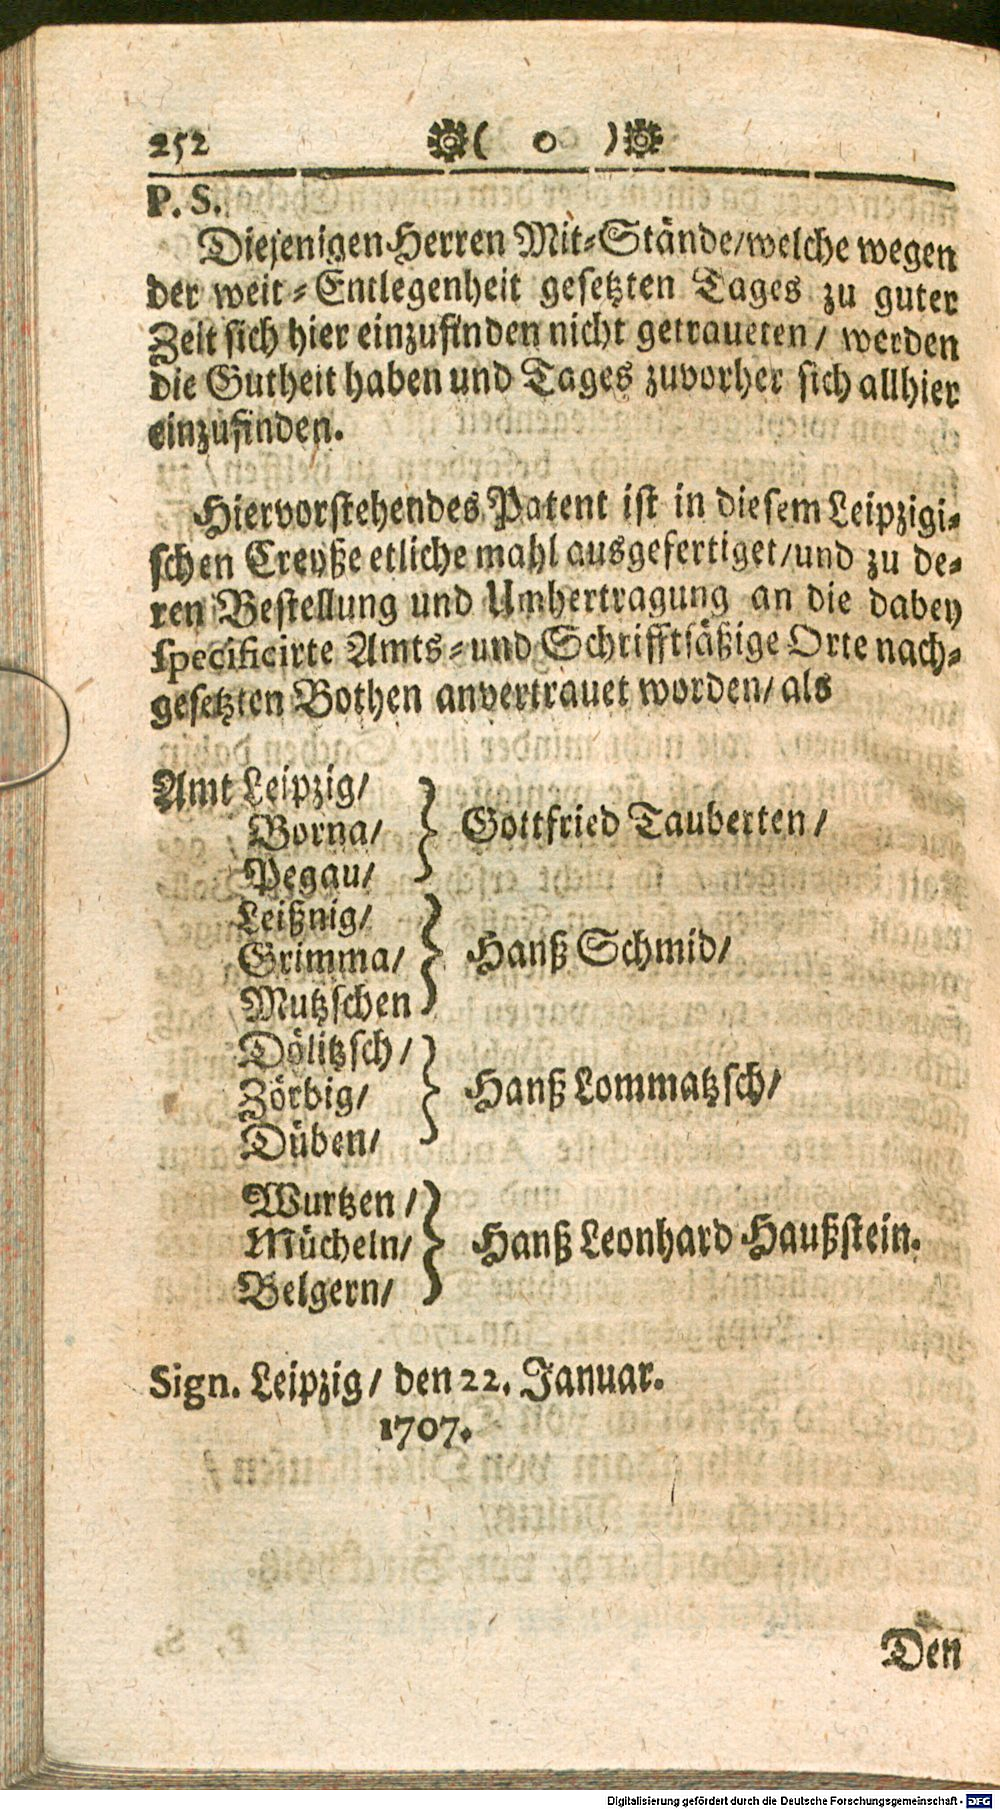 252 ( o )
P. S.
Diejenigen Herren Mit-Stände/welche wegen
der weit-Entlegenheit gesetzten Tages zu guter
Zeit sich hier einzufinden nicht getraueten/ werden
die Gutheit haben und Tages zuvorher sich allhier
einzufinden.
Hiervorstehendes Patent ist in diesem Leipzigi-
schen Creyße etliche mahl ausgefertiget/und zu de-
ren Bestellung und Umhertragung an die dabey
specificirte Amts-und Schrifftsäßige Orte nach-
gesetzten Bothen anvertrauet worden/ als
Amt Leipzig/
Borna/ } Gottfried Tauberten /
Pegau/
Leißnig/
Grimma/ } Hanß Schmid/
Mutzschen
Dölitzsch/
Zörbig/ } Hanß Lommatzsch/
Düben/
Wurtzen /
Mücheln/ } Hanß Leonhard Haußstein.
Belgern/
Sign. Leipzig/ den 22. Januar.
1707.
Den
Digitalisierung gefördert durch die Deutsche Forschungsgemeinschaft - DFG